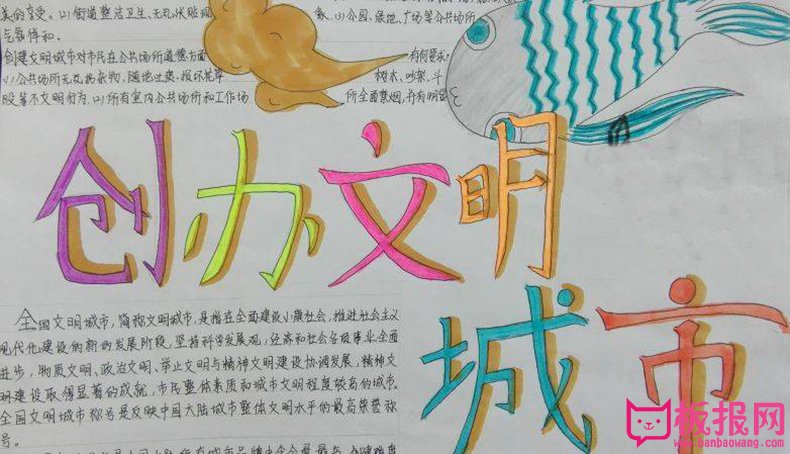 美的享受。(2)街道整洁卫生、无乱张贴现
象、(3)公园、绿地、广场等公共场所
气氛祥和。
创建文明城市对市民在公共场所道德方面
有何要求:
(1)公共场所无乱扔杂物、随地吐痰、损坏花草
树木、吵架、斗
殴等不文明行为、(2)所有室内公共场所和工作场
所全面禁烟,并有明显
创办文明
城市
全国文明城市,简称文明城市,是指在全面建设小康社会,推进社会主义
现代化建设的新的发展阶段,坚持科学发展观,经济和社会各级事业全面
进步,物质文明、政治文明、举止文明与精神文明建设协调发展,精神文
明建设取得显著的成就,市民整体素质和城市文明程度较高的城市。
全国文明城市称号是反映中国大陆城市整体文明水平的最高荣誉称
号。
板报网
www.banbaowang.com